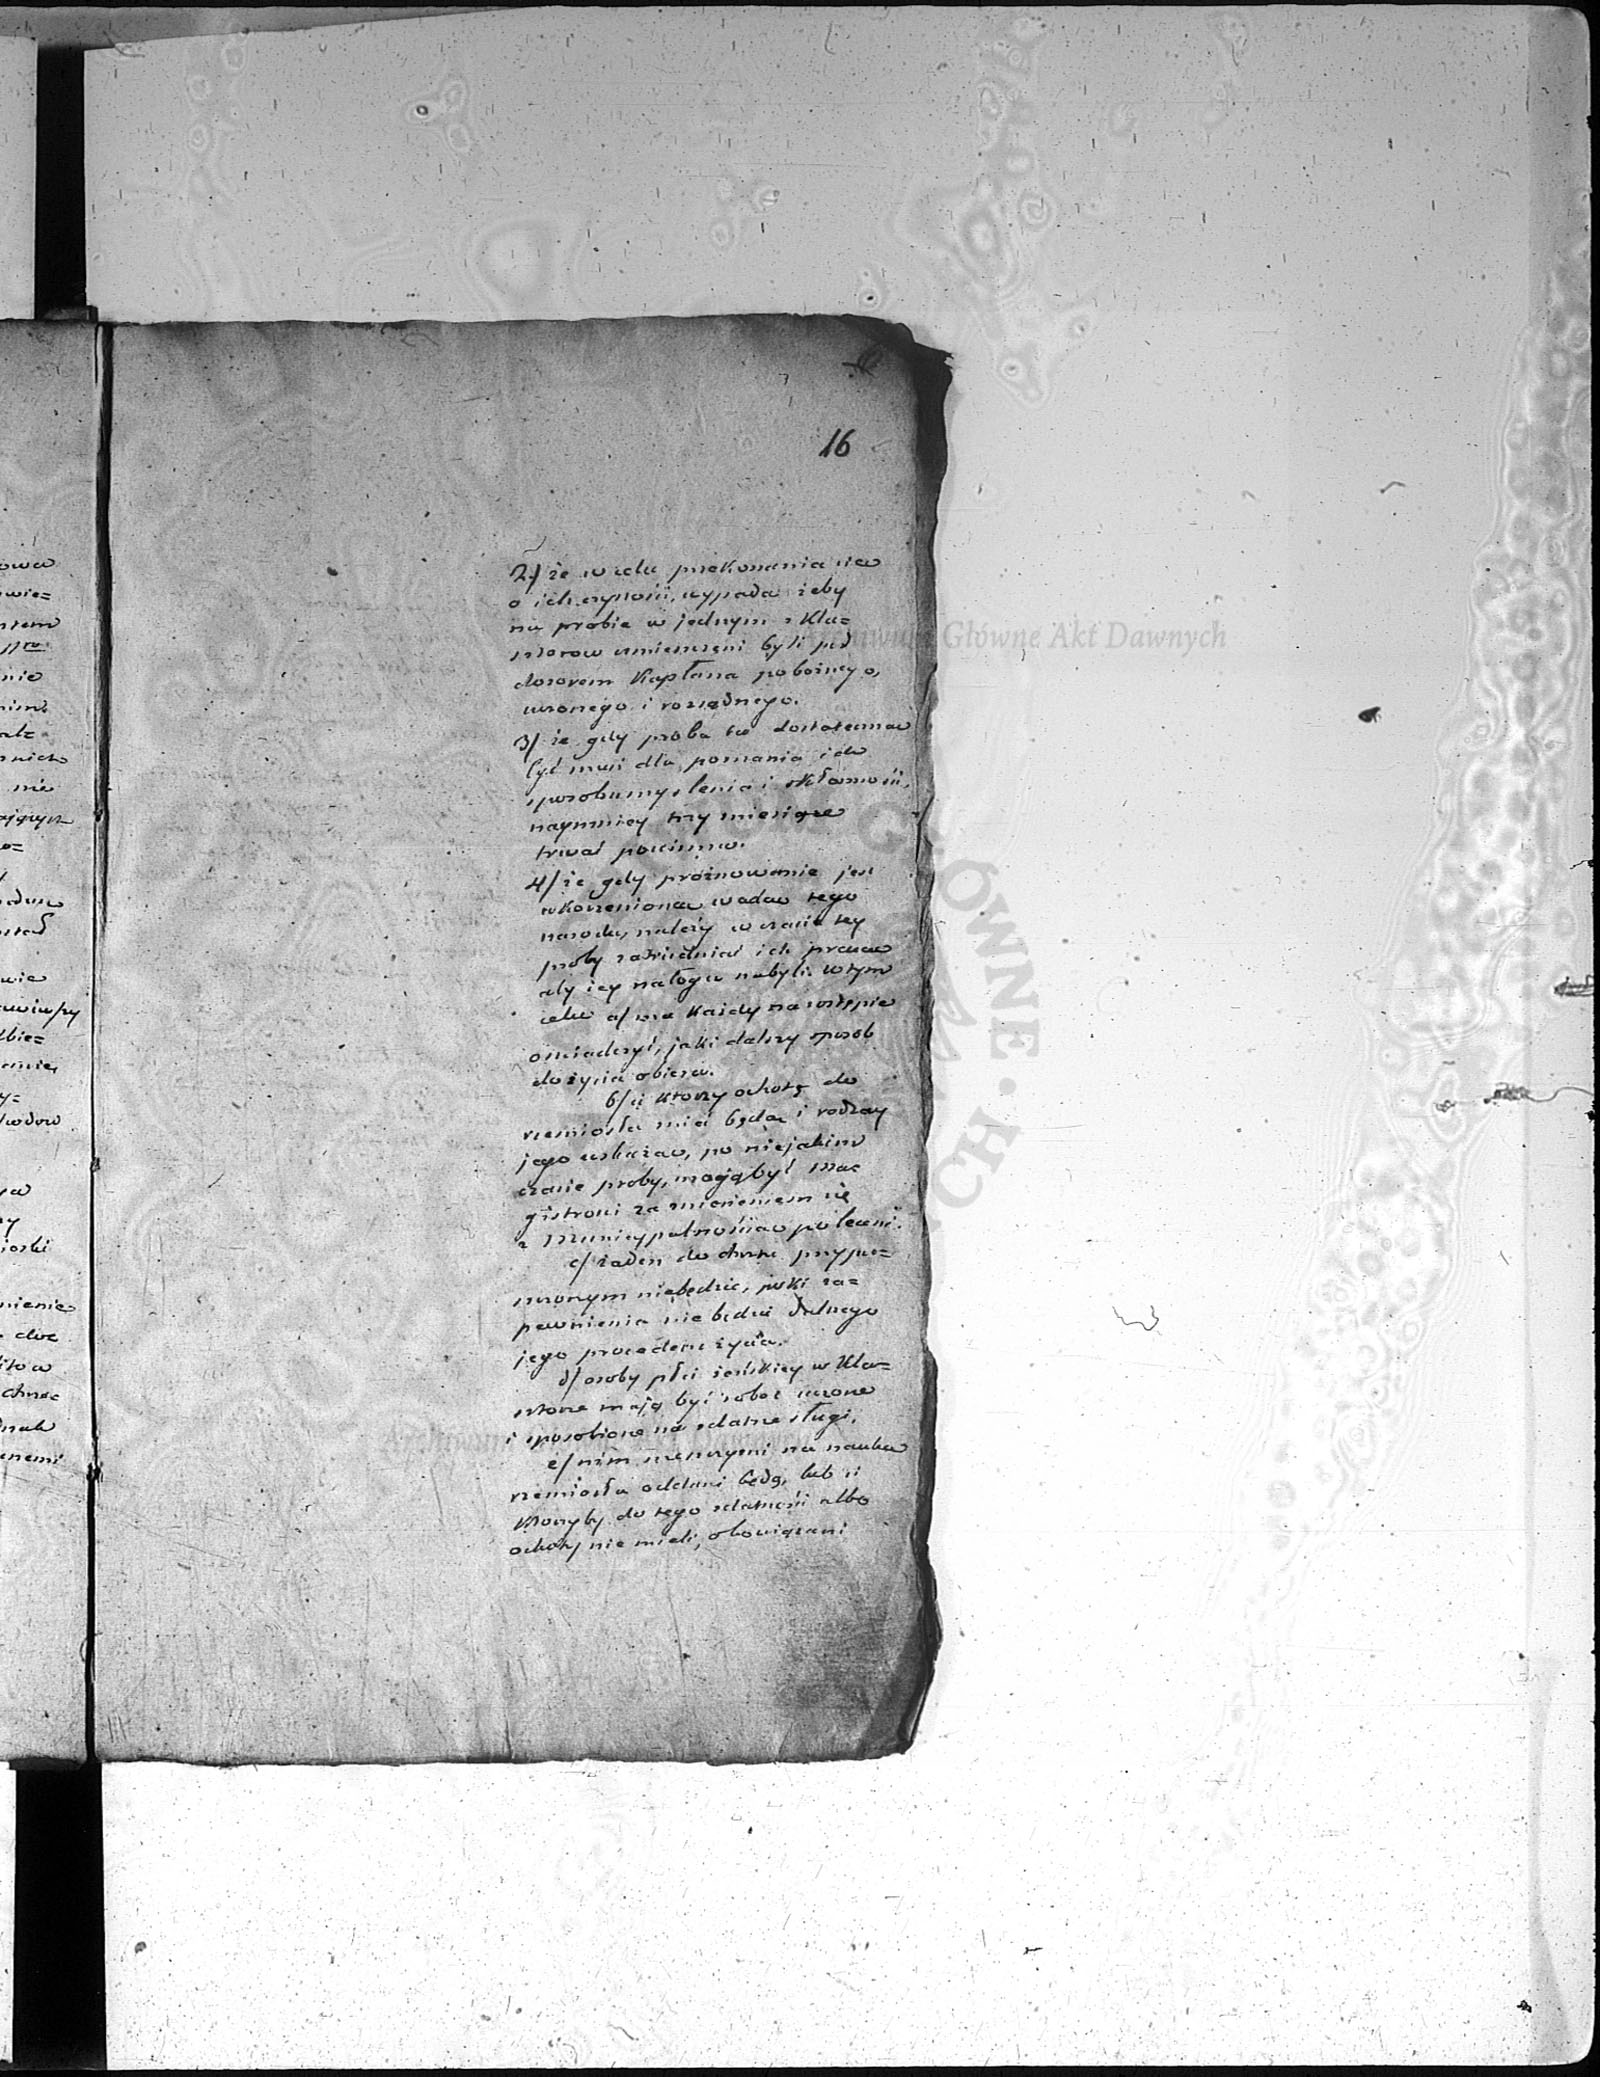 16
2/ że w celu przekonania się
o ich czystości, wypada żeby
na probie w jednym z Kla=
sztorow umieszczeni byli pod
dozorem Kapłana pobożnego,
uczonego i rozsądnego.
3/ że gdy proba ta dostateczna
być musi dla poznania ich
sposobu myslenia i skłonności,
naymniey trzy miesiące
trwać powinna.
4/ że gdy próżnowanie jest
wkorzeniona wada tego
narodu, należy w czasie tey
proby zatrudniać ich praca
aby iey nałogu nabyli. W tym
celu a/ ma każdy na wstępie
oświadczyć, jaki dalszy sposob
do życia obiera.
b/ ci ktorzy ochotę do
rzemiosła mieć będą i rodzay
jego wskażą, po niejakim
czasie proby, mogą być maj=
strowi za zniesieniem się
z municypalnością poleceni.
c/ żaden do chrztu przypu=
szczonym niebędzie, poki za=
pewnienia nie będzie dalszego
jego procederu życia.
d/ osoby płci żeńskiey w Kla=
sztorze mają być robot uczone
i sposobione na zdatne sługi,
e/ nim mężczyzni na nauke
rzemiosła oddani będą, lub ci
ktorzyby do tego zdatności albo
ochoty nie mieli, obowiązani
Archiwum Główne Akt Dawnych